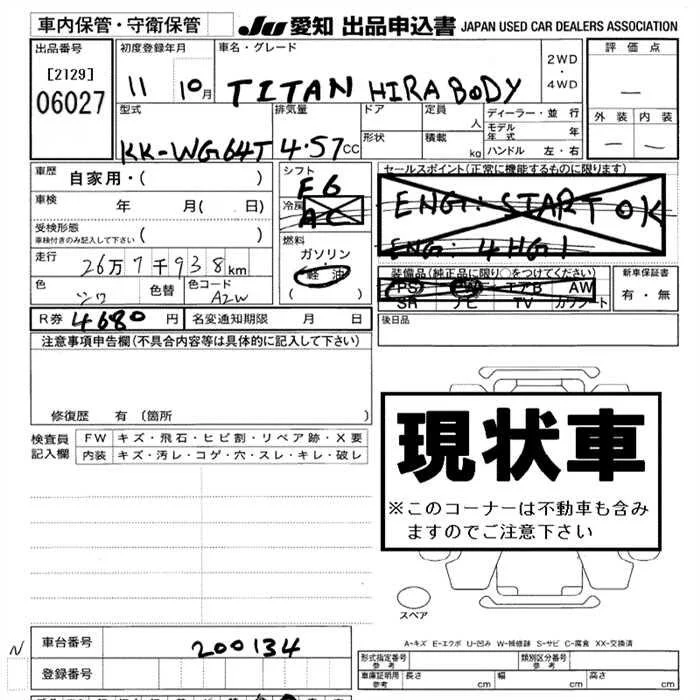 車内保管・守衛保管
JU 愛知 出品申込書 JAPAN USED CAR DEALERS ASSOCIATION
出品番号
[2129]
06027
初度登録年月
11 10月
車名・グレード
TITAN HIRA BODY
2WD
・
4WD
評価点
—
外装 内装
— —
型式
KK-WG64T
排気量
4.57CC
ドア
形状
定員
人
積載
kg
ディーラー・並行
モデル年式 年
ハンドル 左・右
車歴
自家用・( )
車検 年 月( 日)
受検形態
車検付きのみ記入して下さい ( )
走行 26万7千938km
色 シロ 色替 色コード A2W
シフト
F6
冷房
AC
燃料
ガソリン
・
軽油
( )
セールスポイント(正常に機能するものに限ります)
ENG: START OK
ENG: 4HG1
装備品(純正品に限り○をつけてください)
PS PW エアB AW
SR ナビ TV カワシート
新車保証書
有・無
R券 4680円 名変通知期限 月 日
後日品
注意事項申告欄(不具合内容等は具体的に記入して下さい)
修復歴 有(箇所 )
検査員記入欄
FW キズ・飛石・ヒビ割・リペア跡・X要
内装 キズ・汚レ・コゲ・穴・スレ・キレ・破レ
現状車
※このコーナーは不動車も含み
ますのでご注意下さい
スペア
A-キズ E-エクボ U-凹み W-補修跡 S-サビ C-腐食 XX-交換済
N
車台番号 200134
登録番号
形式指定番号 参考
類別区分番号 参考
車庫証明用 参考 長さ cm 幅 cm 高さ cm